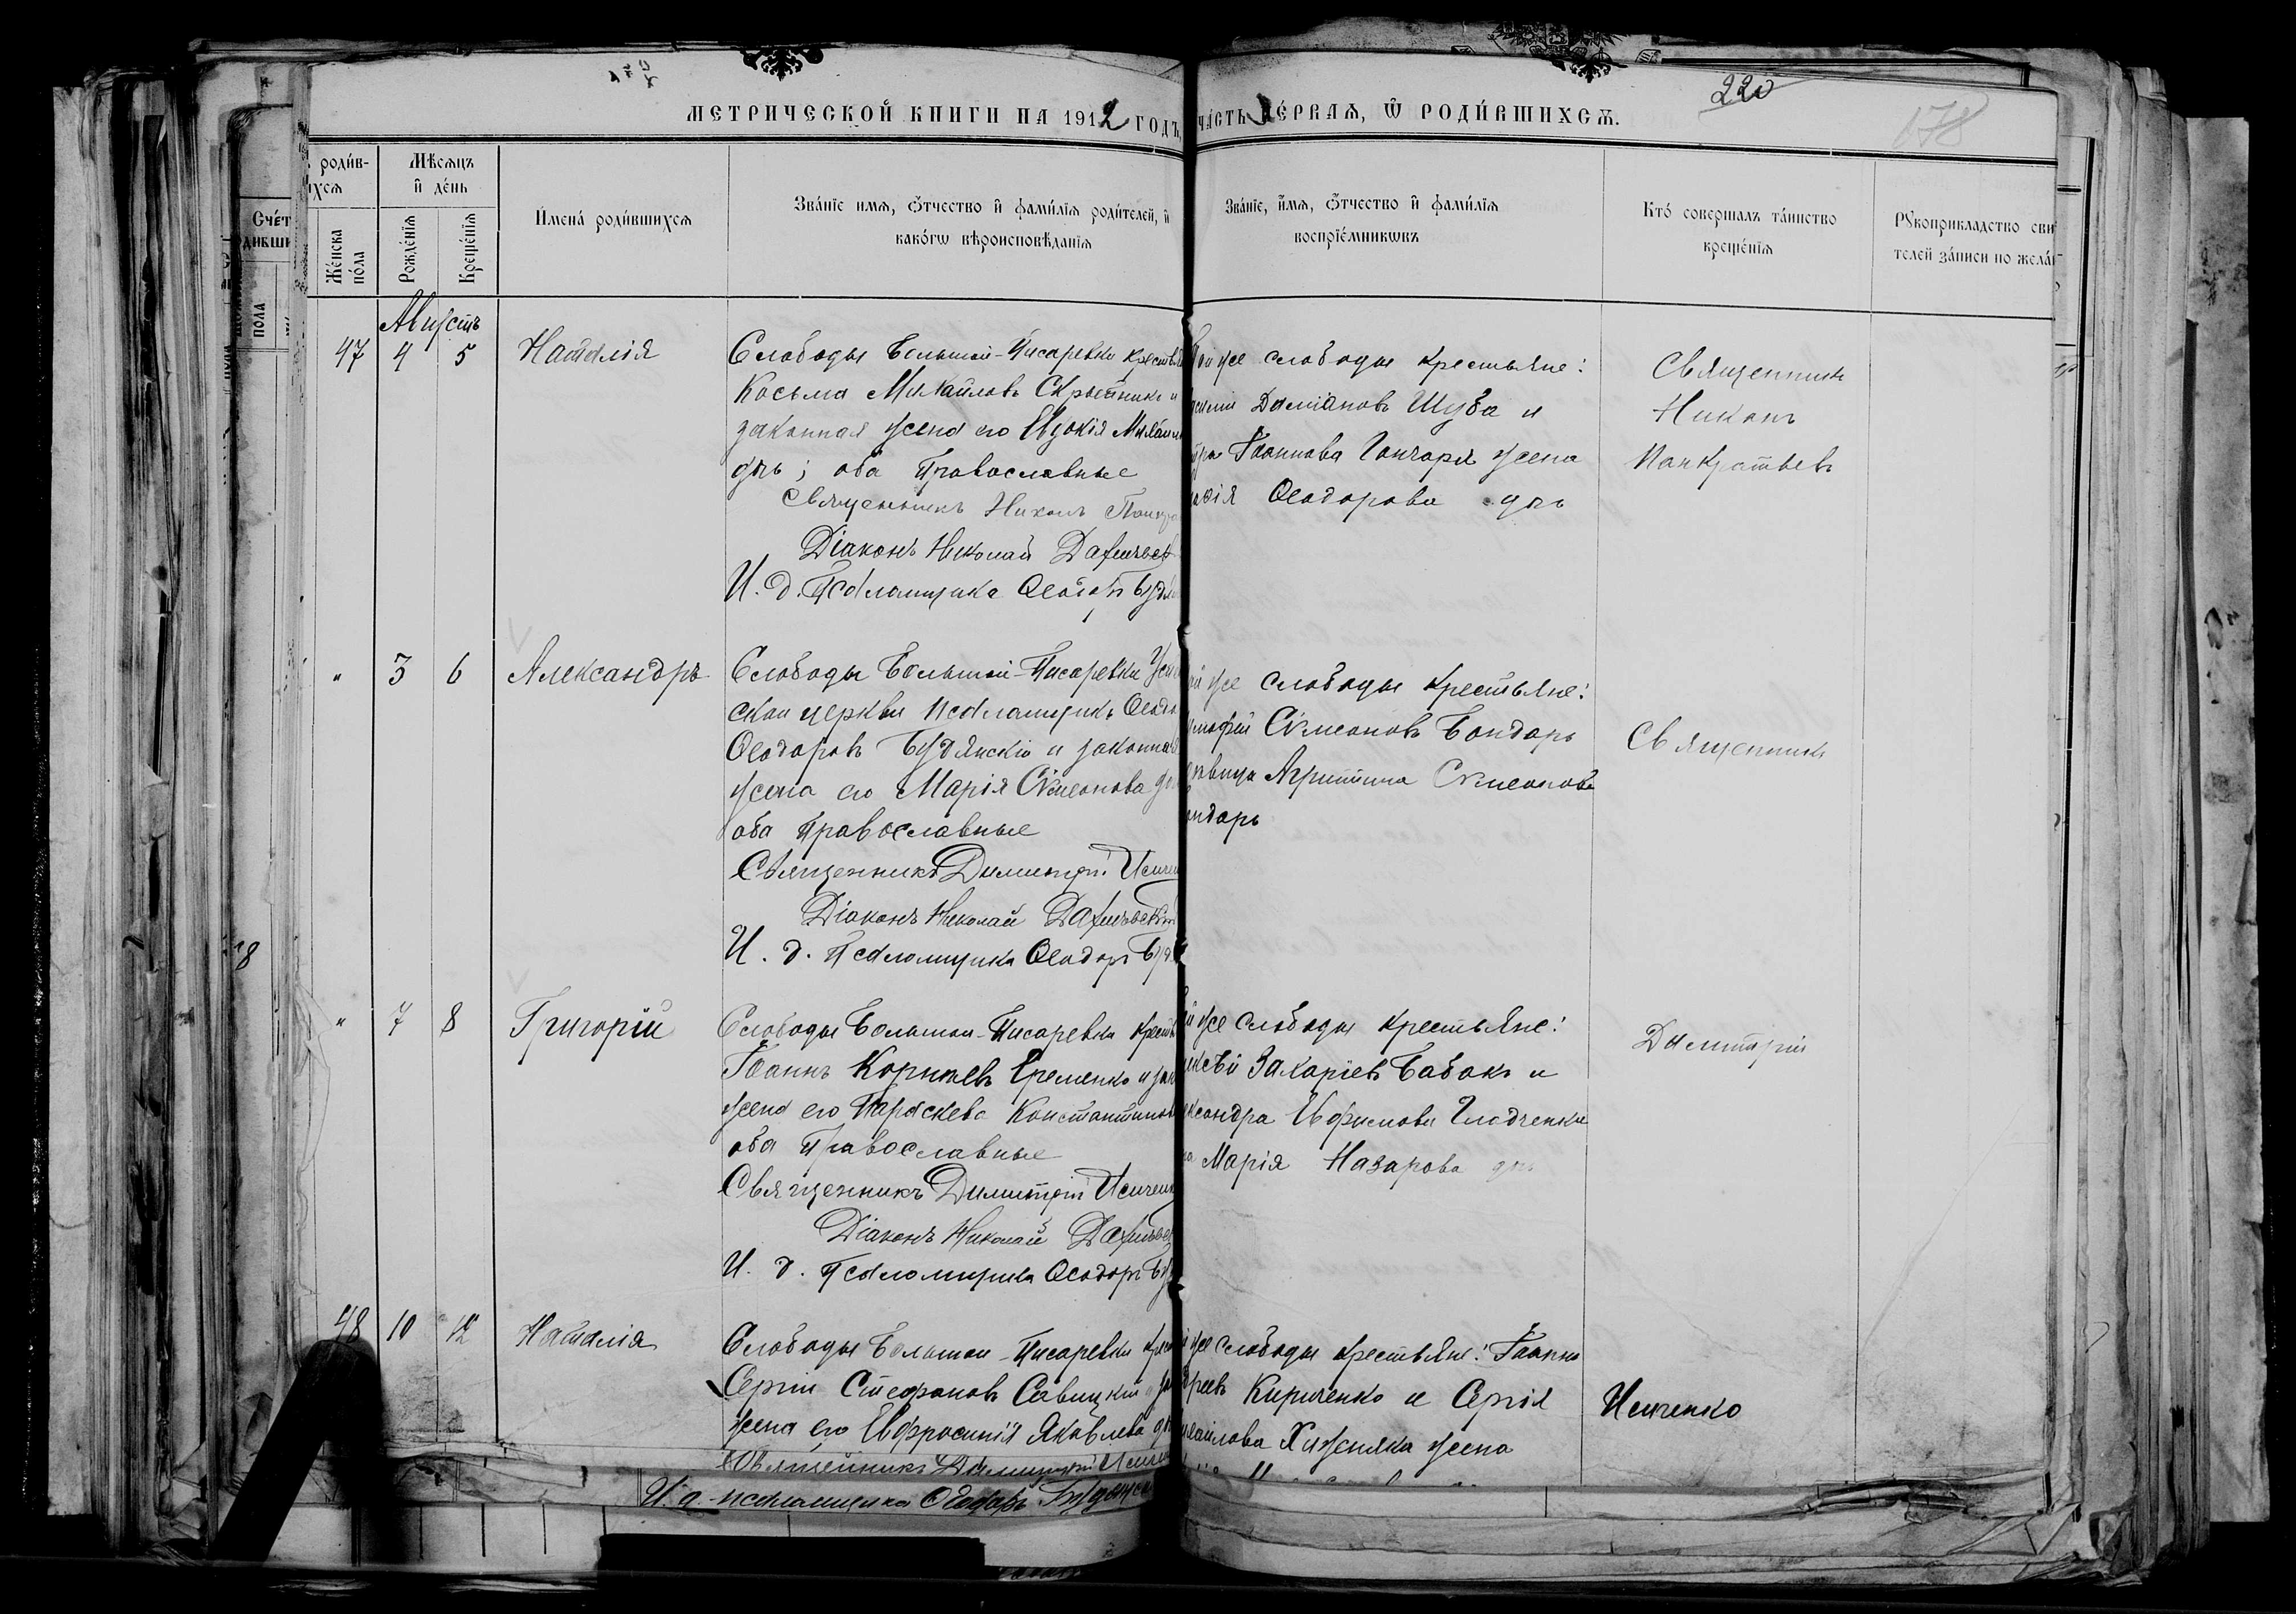 220
178
МЕТРИЧЕСКОЙ КНИГИ НА 1912 ГОДЪ,
ЧАСТЬ ПЕРВАЯ, Ѡ РОДИВШИХСЯ.
родив-
ихся
Мѣсяцъ
и день
Женска
пола
Рожденія
Крещенія
Имена родившихся
Званіе имя, отчество и фамилія родителей, и
какогѡ вѣроисповѣданія
Званіе, имя, отчество и фамилія
воспріемникѡвъ
Кто совершалъ таинство
крещенія
Рукоприкладство сви
телей записи по жела
Счет
пола
Августъ
47 4 5 Наталія
Слободы Большой-Писаревки крестья
Косьма Михайловъ Скрыпникъ и
законная жена его Евдокія Михаил
дпь; оба Православные
Священникъ Никонъ Панкра
Діаконъ Николай
И. д. Псаломщика
Той же слободы крестьяне:
Даміановъ Шуба и
Іоаннова Гончаря жена
Ѳеодорова
Священникъ
Никонъ
Панкратьевъ
" 3 6 Александръ
Слободы Большой-Писаревки Успе
ской церкви псаломщикъ Ѳеодо
Ѳеодоровъ Будянскій и законная
жена его Марія Сѵмеонова
оба Православные
Священникъ Димитрій Исиченк
Діаконъ Николай
И. д. Псаломщика Ѳеодоръ Буд
ой же слободы крестьяне:
имофій Сѵмеоновъ Бондарь
дѣвица Агриппина Сѵмеонова
ондарь
Священникъ
" 7 8 Григорій
Слободы Большой-Писаревки крестья
Іоаннъ Корнѣевъ Еременко и зак
жена его Параскева Константинов
оба Православные
Священникъ Димитрій Исиченк
Діаконъ Николай
И. д. Псаломщика Ѳеодоръ Бу
й же слободы крестьяне:
лексѣй Захаріевъ Бабакъ и
ександра Ефимова Гладченка
на Марія Назарова
Димитрій
48 10 12 Наталія
Слободы Большой-Писаревки крест
Сергій Стефановъ Савицкій и зак
жена его Евфросинія Яковлева
Священникъ Димитрій Исиче
И. д. псаломщика Ѳеодоръ Будянск
же слободы крестьяне: Іоаннъ
дреевъ Кириченко и Сергія
ихаилова Хижняка жена
Исиченко